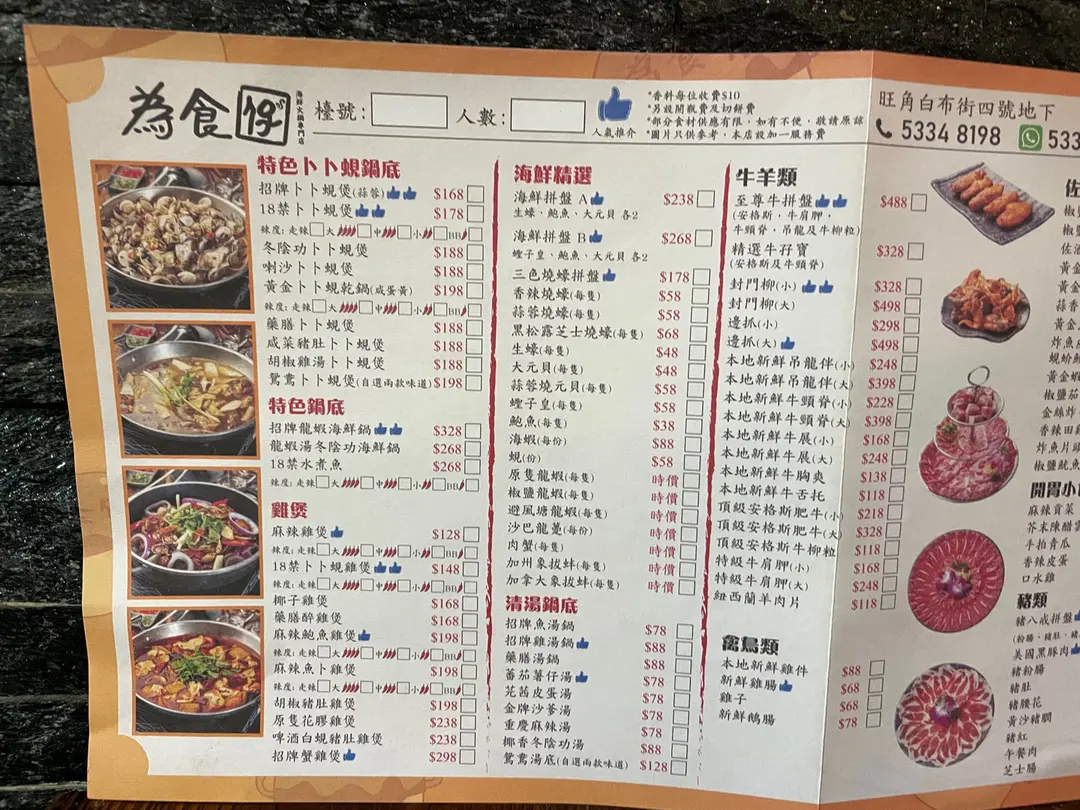 為食仔
海鮮火鍋專門店
檯號:
人數:
人氣推介
*香料每位收費$10
*另設開瓶費及切餅費
*部分食材供應有限，如有不便，敬請原諒
*圖片只供參考，本店設加一服務費
旺角白布街四號地下
5334 8198
533
特色卜卜蜆鍋底
招牌卜卜蜆煲(蒜蓉) $168
18禁卜卜蜆煲 $178
辣度: 走辣 大 中 小 BB
冬陰功卜卜蜆煲 $188
喇沙卜卜蜆煲 $188
黃金卜卜蜆乾鍋(咸蛋黃) $198
辣度: 走辣 大 中 小 BB
藥膳卜卜蜆煲 $188
咸菜豬肚卜卜蜆 $188
胡椒雞湯卜卜蜆 $188
鴛鴦卜卜蜆煲(自選兩款味道) $198
特色鍋底
招牌龍蝦海鮮鍋 $328
龍蝦湯冬陰功海鮮鍋 $268
18禁水煮魚 $268
辣度: 走辣 大 中 小 BB
雞煲
麻辣雞煲 $128
辣度: 走辣 大 中 小 BB
18禁卜卜蜆雞煲 $148
辣度: 走辣 大 中 小 BB
椰子雞煲 $168
藥膳醉雞煲 $168
麻辣鮑魚雞煲 $198
辣度: 走辣 大 中 小 BB
麻辣魚卜雞煲 $198
辣度: 走辣 大 中 小 BB
胡椒豬肚雞煲 $198
原隻花膠雞煲 $238
啤酒白蜆豬肚雞煲 $238
招牌蟹雞煲 $298
海鮮精選
海鮮拼盤 A $238
生蠔、鮑魚、大元貝 各2
海鮮拼盤 B $268
蟶子皇、鮑魚、大元貝 各2
三色燒蠔拼盤 $178
香辣燒蠔(每隻) $58
蒜蓉燒蠔(每隻) $58
黑松露芝士燒蠔(每隻) $68
生蠔(每隻) $48
大元貝(每隻) $48
蒜蓉燒元貝(每隻) $58
蟶子皇(每隻) $58
鮑魚(每隻) $38
海蝦(每份) $88
蜆(份) $58
原隻龍蝦(每隻) 時價
椒鹽龍蝦(每隻) 時價
避風塘龍蝦(每隻) 時價
沙巴龍躉(每份) 時價
肉蟹(每隻) 時價
加州象拔蚌(每隻) 時價
加拿大象拔蚌(每隻) 時價
清湯鍋底
招牌魚湯鍋 $78
招牌雞湯鍋 $88
藥膳湯鍋 $88
番茄薯仔湯 $78
芫茜皮蛋湯 $78
金牌沙爹湯 $78
重慶麻辣湯 $78
椰香冬陰功湯 $88
鴛鴦湯底(自選兩款味道) $128
牛羊類
至尊牛拼盤 $488
(安格斯，牛肩胛，
牛頸脊，吊龍及牛柳粒)
精選牛孖寶 $328
(安格斯及牛頸脊)
封門柳(小) $328
封門柳(大) $498
邊抓(小) $298
邊抓(大) $498
本地新鮮吊龍伴(小) $248
本地新鮮吊龍伴(大) $398
本地新鮮牛頸脊(小) $228
本地新鮮牛頸脊(大) $398
本地新鮮牛展(小) $168
本地新鮮牛展(大) $248
本地新鮮牛胸爽 $138
本地新鮮牛舌托 $118
頂級安格斯肥牛(小) $218
頂級安格斯肥牛(大) $328
頂級安格斯牛柳粒 $118
特級牛肩胛(小) $168
特級牛肩胛(大) $248
紐西蘭羊肉片 $118
禽鳥類
本地新鮮雞件 $88
新鮮雞腸 $68
雞子 $68
新鮮鵝腸 $78
佐
椒
椒鹽
佐酒
黃金
黃金
蒜香
香
炸魚皮
蜆蚧鯪
黃金蝦
椒鹽茄
金絲炸
香辣田雞
炸魚片頭
椒鹽魷魚
開胃小
麻辣貢菜
芥末陳醋雲
手拍青瓜
香辣皮蛋
口水雞
豬類
豬八戒拼盤
(粉腸、豬肚、豬
美國黑豚肉
豬粉腸
豬肚
豬腰花
黃沙豬膶
豬紅
午餐肉
芝士腸